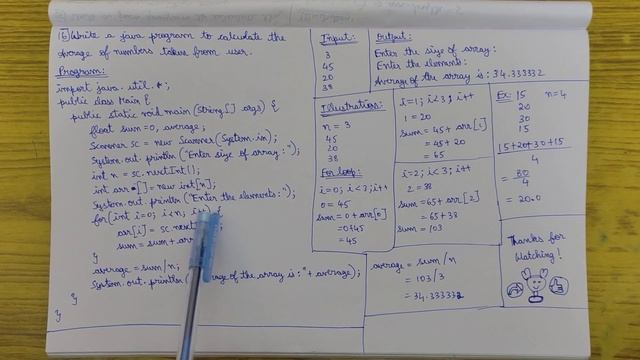 16) Write a java program to calculate the
average of numbers taken from user.
Program:
import java.util.*;
public class Main {
public static void main (String[] args) {
float sum=0, average;
Scanner sc = new Scanner (System.in);
System.out.println ("Enter size of array:");
int n = sc.nextInt();
int arr[] = new int[n];
System.out.println ("Enter the elements:");
for(int i=0; i<n; i++) {
arr[i] = sc.next
sum = sum+arr
}
average = sum/n;
System.out.println ( of the array is:"+average);
}
}
Input:
3
45
20
38
Output:
Enter the size of array:
Enter the elements:
Average of the array is: 34.333332
Illustration:
n = 3
45
20
38
For loop:
i=0; i<3; i++
0 = 45
sum = 0+arr[0]
=0+45
= 45
i=1; i<3; i++
1 = 20
sum = 45+ arr[1]
= 45+20
= 65
i=2; i<3; i++
2 = 38
sum = 65+arr[2]
= 65+38
sum = 103
average = sum/n
= 103/3
= 34.333332
Ex: 15 n=4
20
30
15
15+20+30+15
4
= 80
4
= 20.0
Thanks for
Watching!